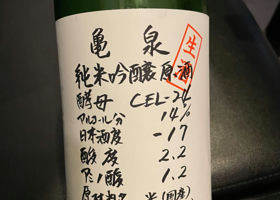 亀泉
生酒
純米吟醸原酒
酵母 CEL-24
アルコール分 14%
日本酒度 -17
酸度 2.2
アミノ酸 1.2
原材料名 米(国産)